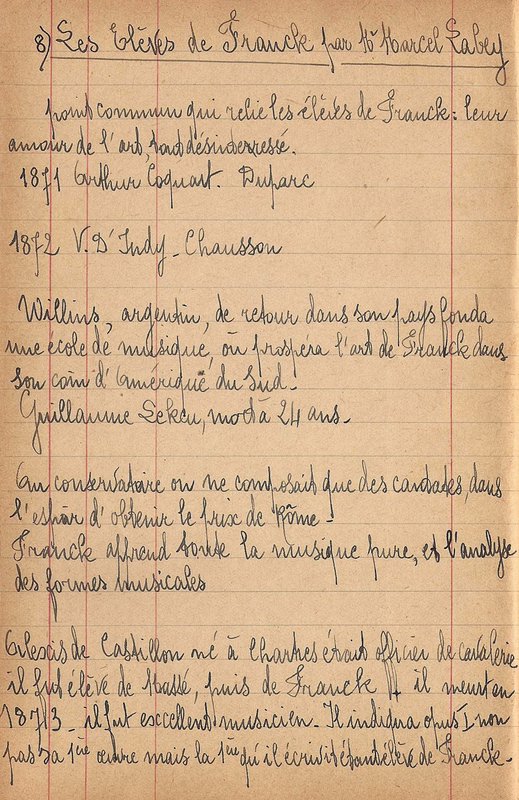 8) Les Elèves de Franck par Mr Marcel Labey
point commun qui relie les élèves de Franck : leur
amour de l'art, tout désinterressé.
1871 Arthur Coquart. Duparc
1872 V. D'Indy - Chausson
Willins, argentin, de retour dans son pays fonda
une école de musique, où prospéra l'art de Franck dans
son coin d'Amérique du Sud -
Guillaume Lekeu, mort à 24 ans -
Au conservatoire on ne composait que des cantates, dans
l'espoir d'obtenir le prix de Rôme -
Franck apprend toute la musique pure, et l'analyse
des formes musicales
Alexis de Castillon né à Chartres était officier de cavalerie
il fut élève de Massé, puis de Franck il meurt en
1873 il fut exccellent musicien - Il indiqua opus I non
pas sa 1ère œuvre mais la 1ère qu'il écrivit étant élève de Franck -